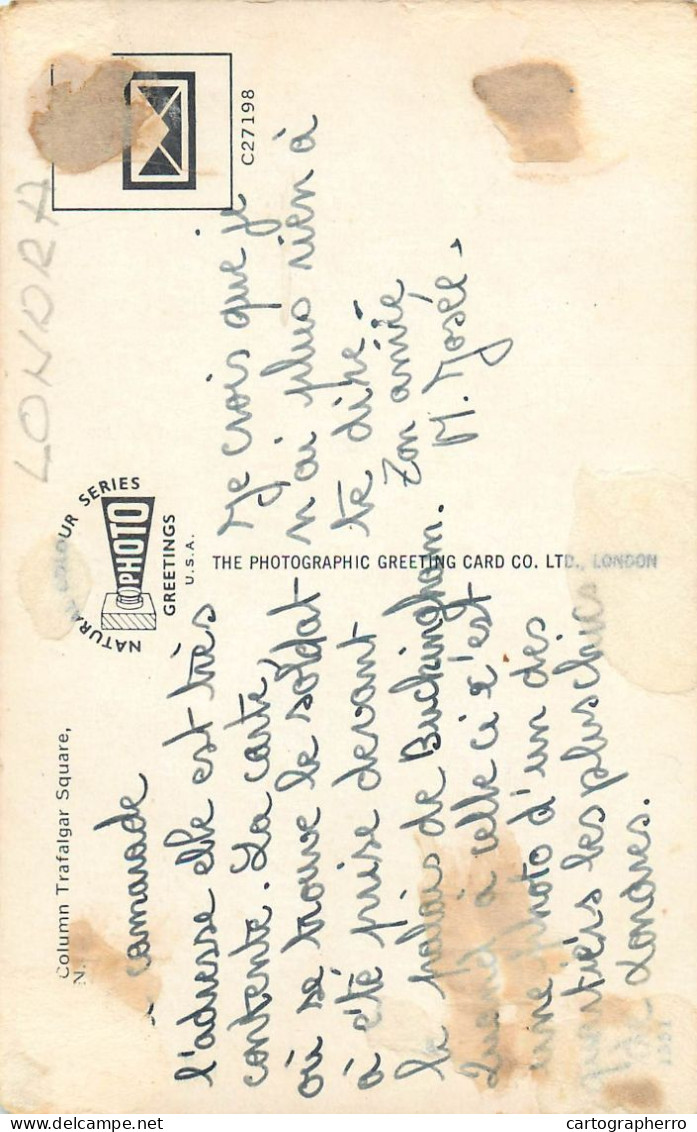 Column Trafalgar Square,
N.
camarade
l'adresse elle est très
contente. La carte,
où se trouve le soldat
a été prise devant
le palais de Buckingham.
Quand à celle ci c'est
une photo d'un des
quartiers les plus chics
de Londres.
THE PHOTOGRAPHIC GREETING CARD CO. LTD., LONDON
NATURAL COLOUR SERIES
PHOTO
GREETINGS
U.S.A.
Je crois que je
n'ai plus rien à
te dire.
Ton amie
M. Josée.
C27198
LONDRA
Delcampe.net
cartographerro